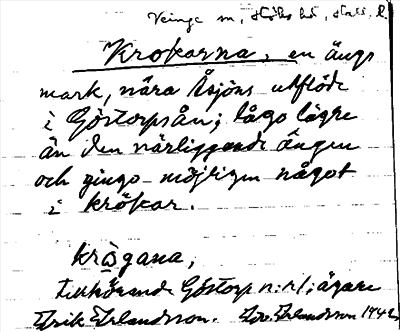 Veinge sn, Höks hd, Hall. l.
Krokarna, en ängs
mark, nära Åsjöns utflöde
i Göstorpsån; lågo lägre
än den närliggande ängen
och gingo möjligen något
i krökar.
krògana,
tillhörande Göstorp n:r 1; ägare
Erik Erlandsson. Erlandsson 1942